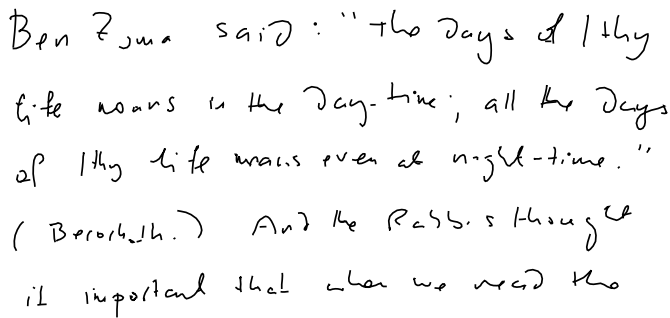 Ben Zoma said: "The days of thy
life means in the day-time; all the days
of thy life means even at night-time."
(Berochoth.) And the Rabbis thought
it important that when we read the